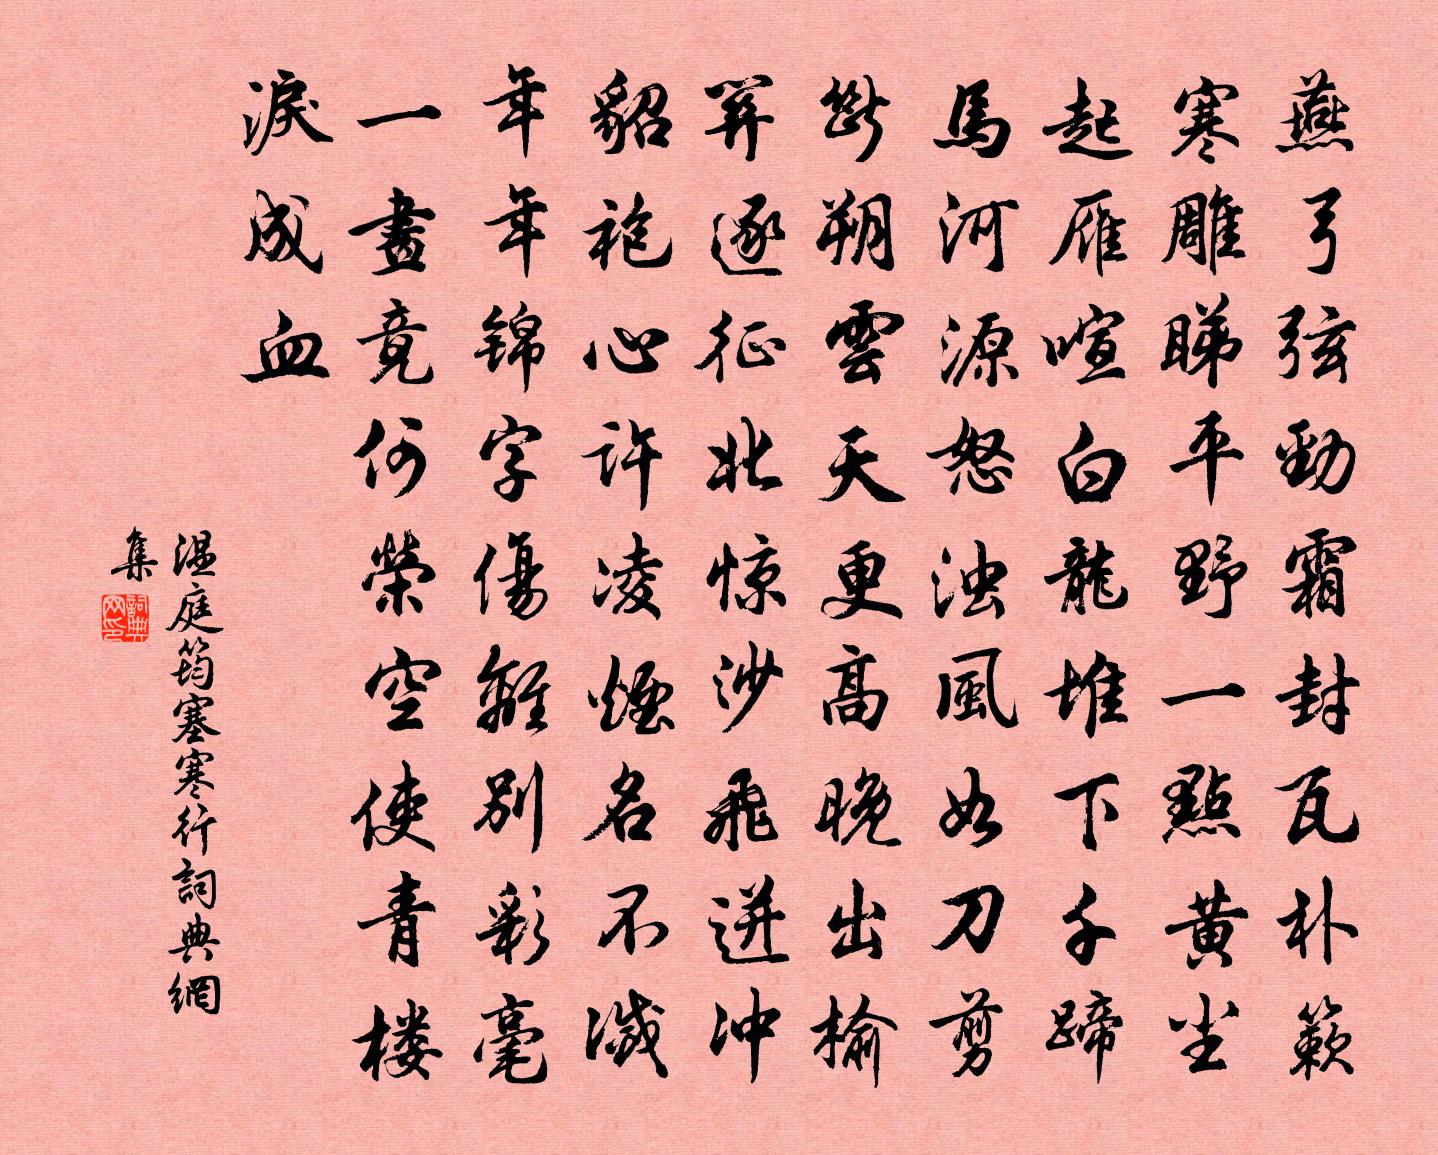 燕弓弦勁霜封瓦朴簌
寒雕睇平野一點黄尘
起雁喧白龍堆下千蹄
馬河源怒浊風如刀剪
斷朔雲天更高晚出榆
關逐征北惊沙飛迸冲
貂袍心許凌煙名不滅
年年锦字傷離别彩毫
一畫竟何榮空使青楼
淚成血
温庭筠塞寒行詞典網
集
詞典网印